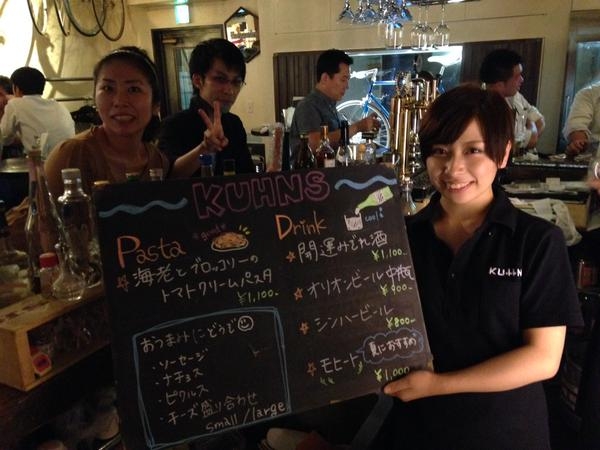 KUHNS
Pasta
good
海老とブロッコリーの
トマトクリームパスタ
¥1,100-
おつまみにどうぞ
・ソーセージ
・ナチョス
・ピクルス
・チーズ盛り合わせ
small / large
Drink
cool
開運みぞれ酒
¥1,100-
オリオンビール 中瓶
¥900-
シンハービール
¥800-
モヒート
夏におすすめ
¥1,000
KUHN